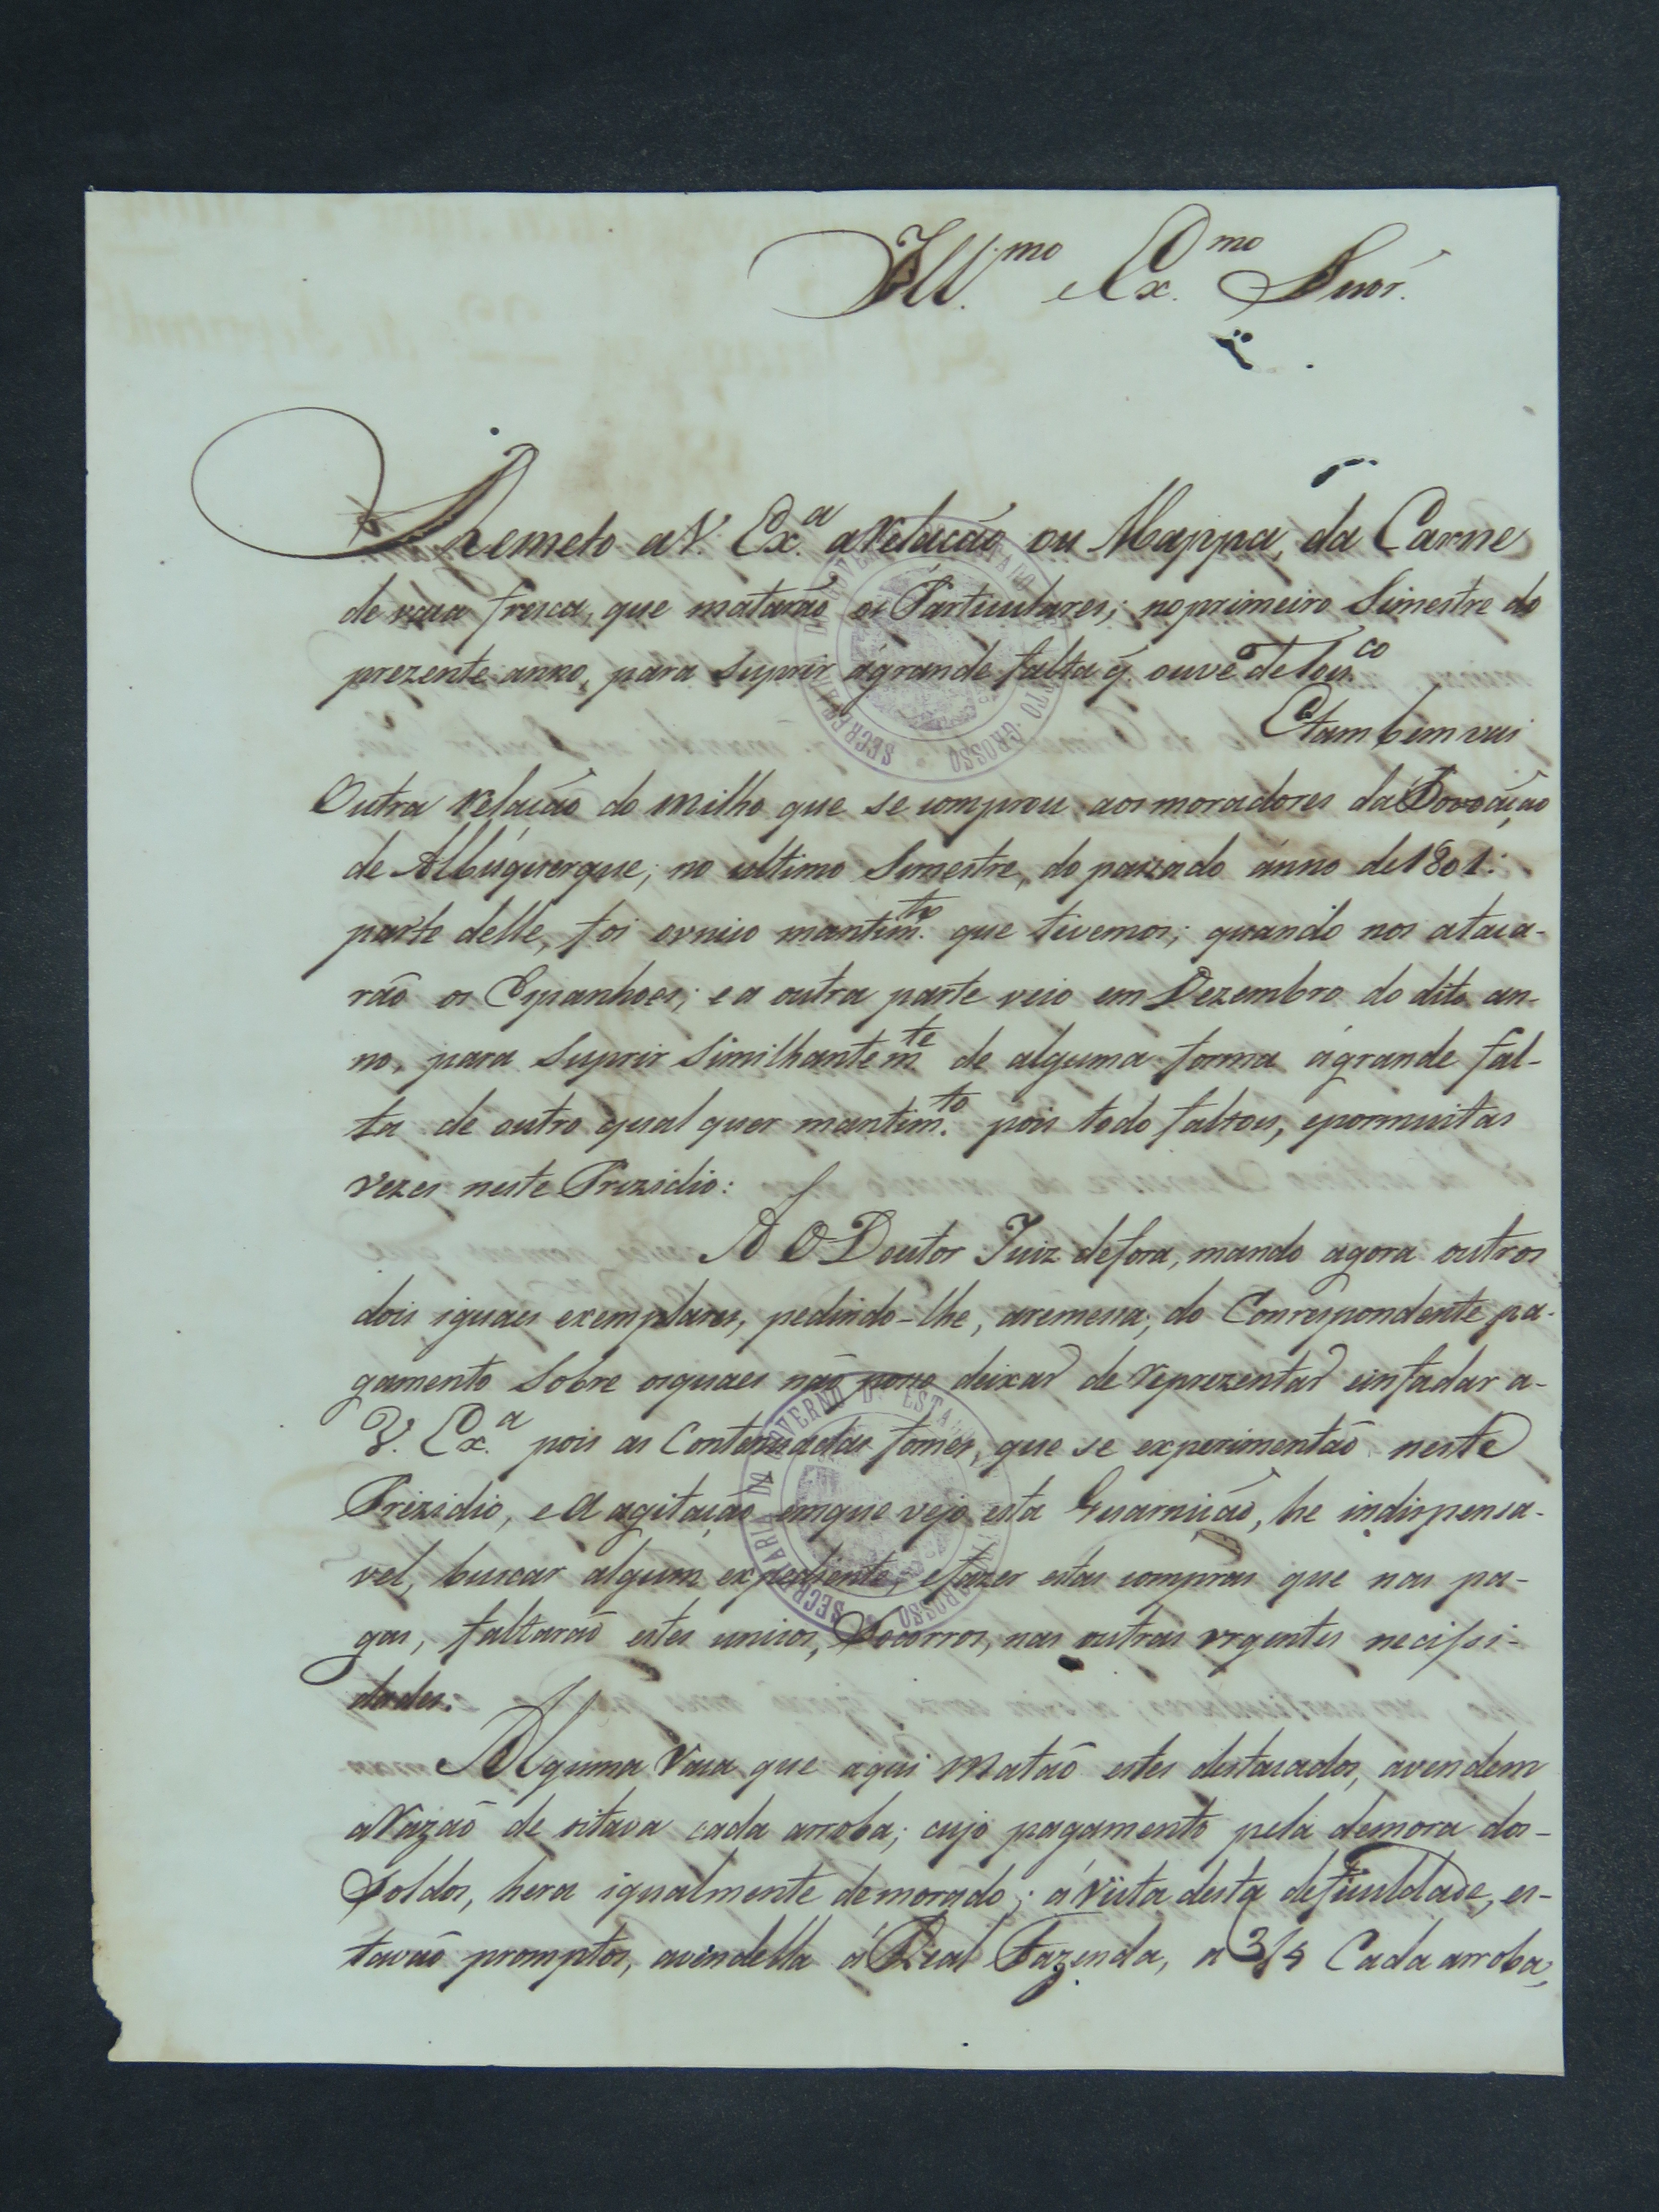 Ill.mo Ex.mo Snor.
Remeto a V. Ex.a a Relacão ou Mappa, da Carne
de vaca fresca, que matarão os Particulares; no primeiro Simestre do
prezente anno, para Suprir ágrande falta q̃ ouve de Touc.co
Etambem vai
Outra relacão do milho que se comprou aos moradores da Povoação
de Albuquerque; no ultimo Simestre, do paçado ánno de 1801:
parte delle, foi o vnico mantim.to que tivemos; quando nos ataca-
rão os Espanhoes; e a outra parte veio em Dezembro do dito an-
no, para Suprir Similhantem.te de alguma forma ágrande fal-
ta de outro qual quer mantim.to pois todo faltou, epormuitas
vezes neste Prezidio:
AO Doutor Juiz defora, mando agora outros
dois iguaes exemplares, pedindo-lhe, aremessa, do Correspondente pa-
gamento Sobre osquaes não posso deixar de reprezentar einfadar a-
V. Ex.a pois as Contenuadas fomes, que se experimentão neste
Prezidio, e a agitação emque vejo esta Guarnicão, he indispensa-
vel, buscar algum expediente, efazer estas compras que nas pa-
gas, faltarão estes unicos, Socorros, nas outras vrgentes necissi-
dades:
Alguma Vaca que aqui matão estes destacados, avendem
a Razão de oitava cada arroba; cujo pagamento pela demora dos-
Soldos, hera igualmente demorado; á Vista desta deficuldade, es-
tavão promptos, avendella á Real Fazenda, a 3/4 Cada arroba,
SECRETARIA DO GOVERNO DO ESTADO MATTO GROSSO
SECRETARIA DO GOVERNO DO ESTADO MATTO GROSSO